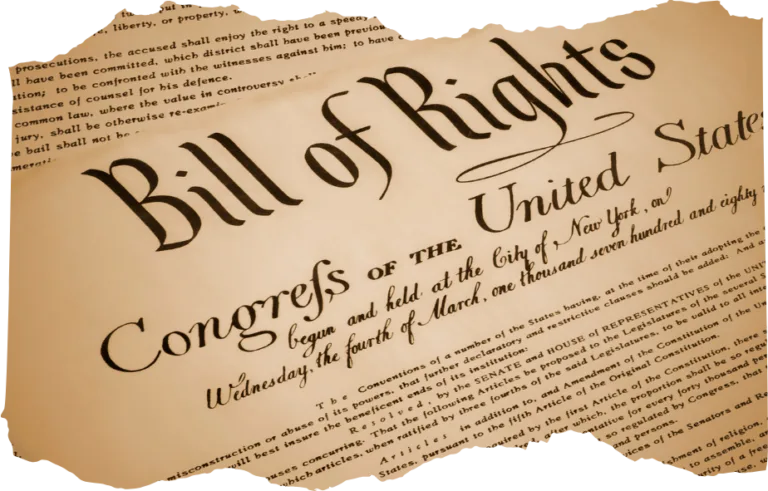 liberty, or property,
prosecutions, the accused shall enjoy the right to a speedy
ll have been committed, which district shall have been previou
ution; to be confronted with the witnesses against him; to have
sistance of counsel for his defence.
common law, where the value in controversy
jury, shall be otherwise re-exami
e bail shall not be
Bill of Rights
Congreſs OF THE United States
begun and held at the City of New York, on
Wednesday, the fourth of March, one thousand seven hundred and eighty
The Conventions of a number of the States having, at the time of their adopting the
misconstruction or abuse of its powers, that further declaratory and restrictive clauses should be added: And
will best insure the beneficent ends of its institution:
Resolved, by the SENATE and HOUSE of REPRESENTATIVES of the UNI
uses concurring. That the following Articles be proposed to the Legislatures of the several S
which articles, when ratified by three fourths of the said Legislatures, to be valid to all inte
Articles in addition to, and Amendment of the Constitution of the Un
States, pursuant to the fifth Article of the Original Constitution.
quired by the first Article of the Constitution, there
after which, the proportion shall be so regu
tative for every forty thousand pers
so regulated by Congress, that
and persons.
ices of the Senators and Re
shment of religion,
to assemble, an
rity of a free